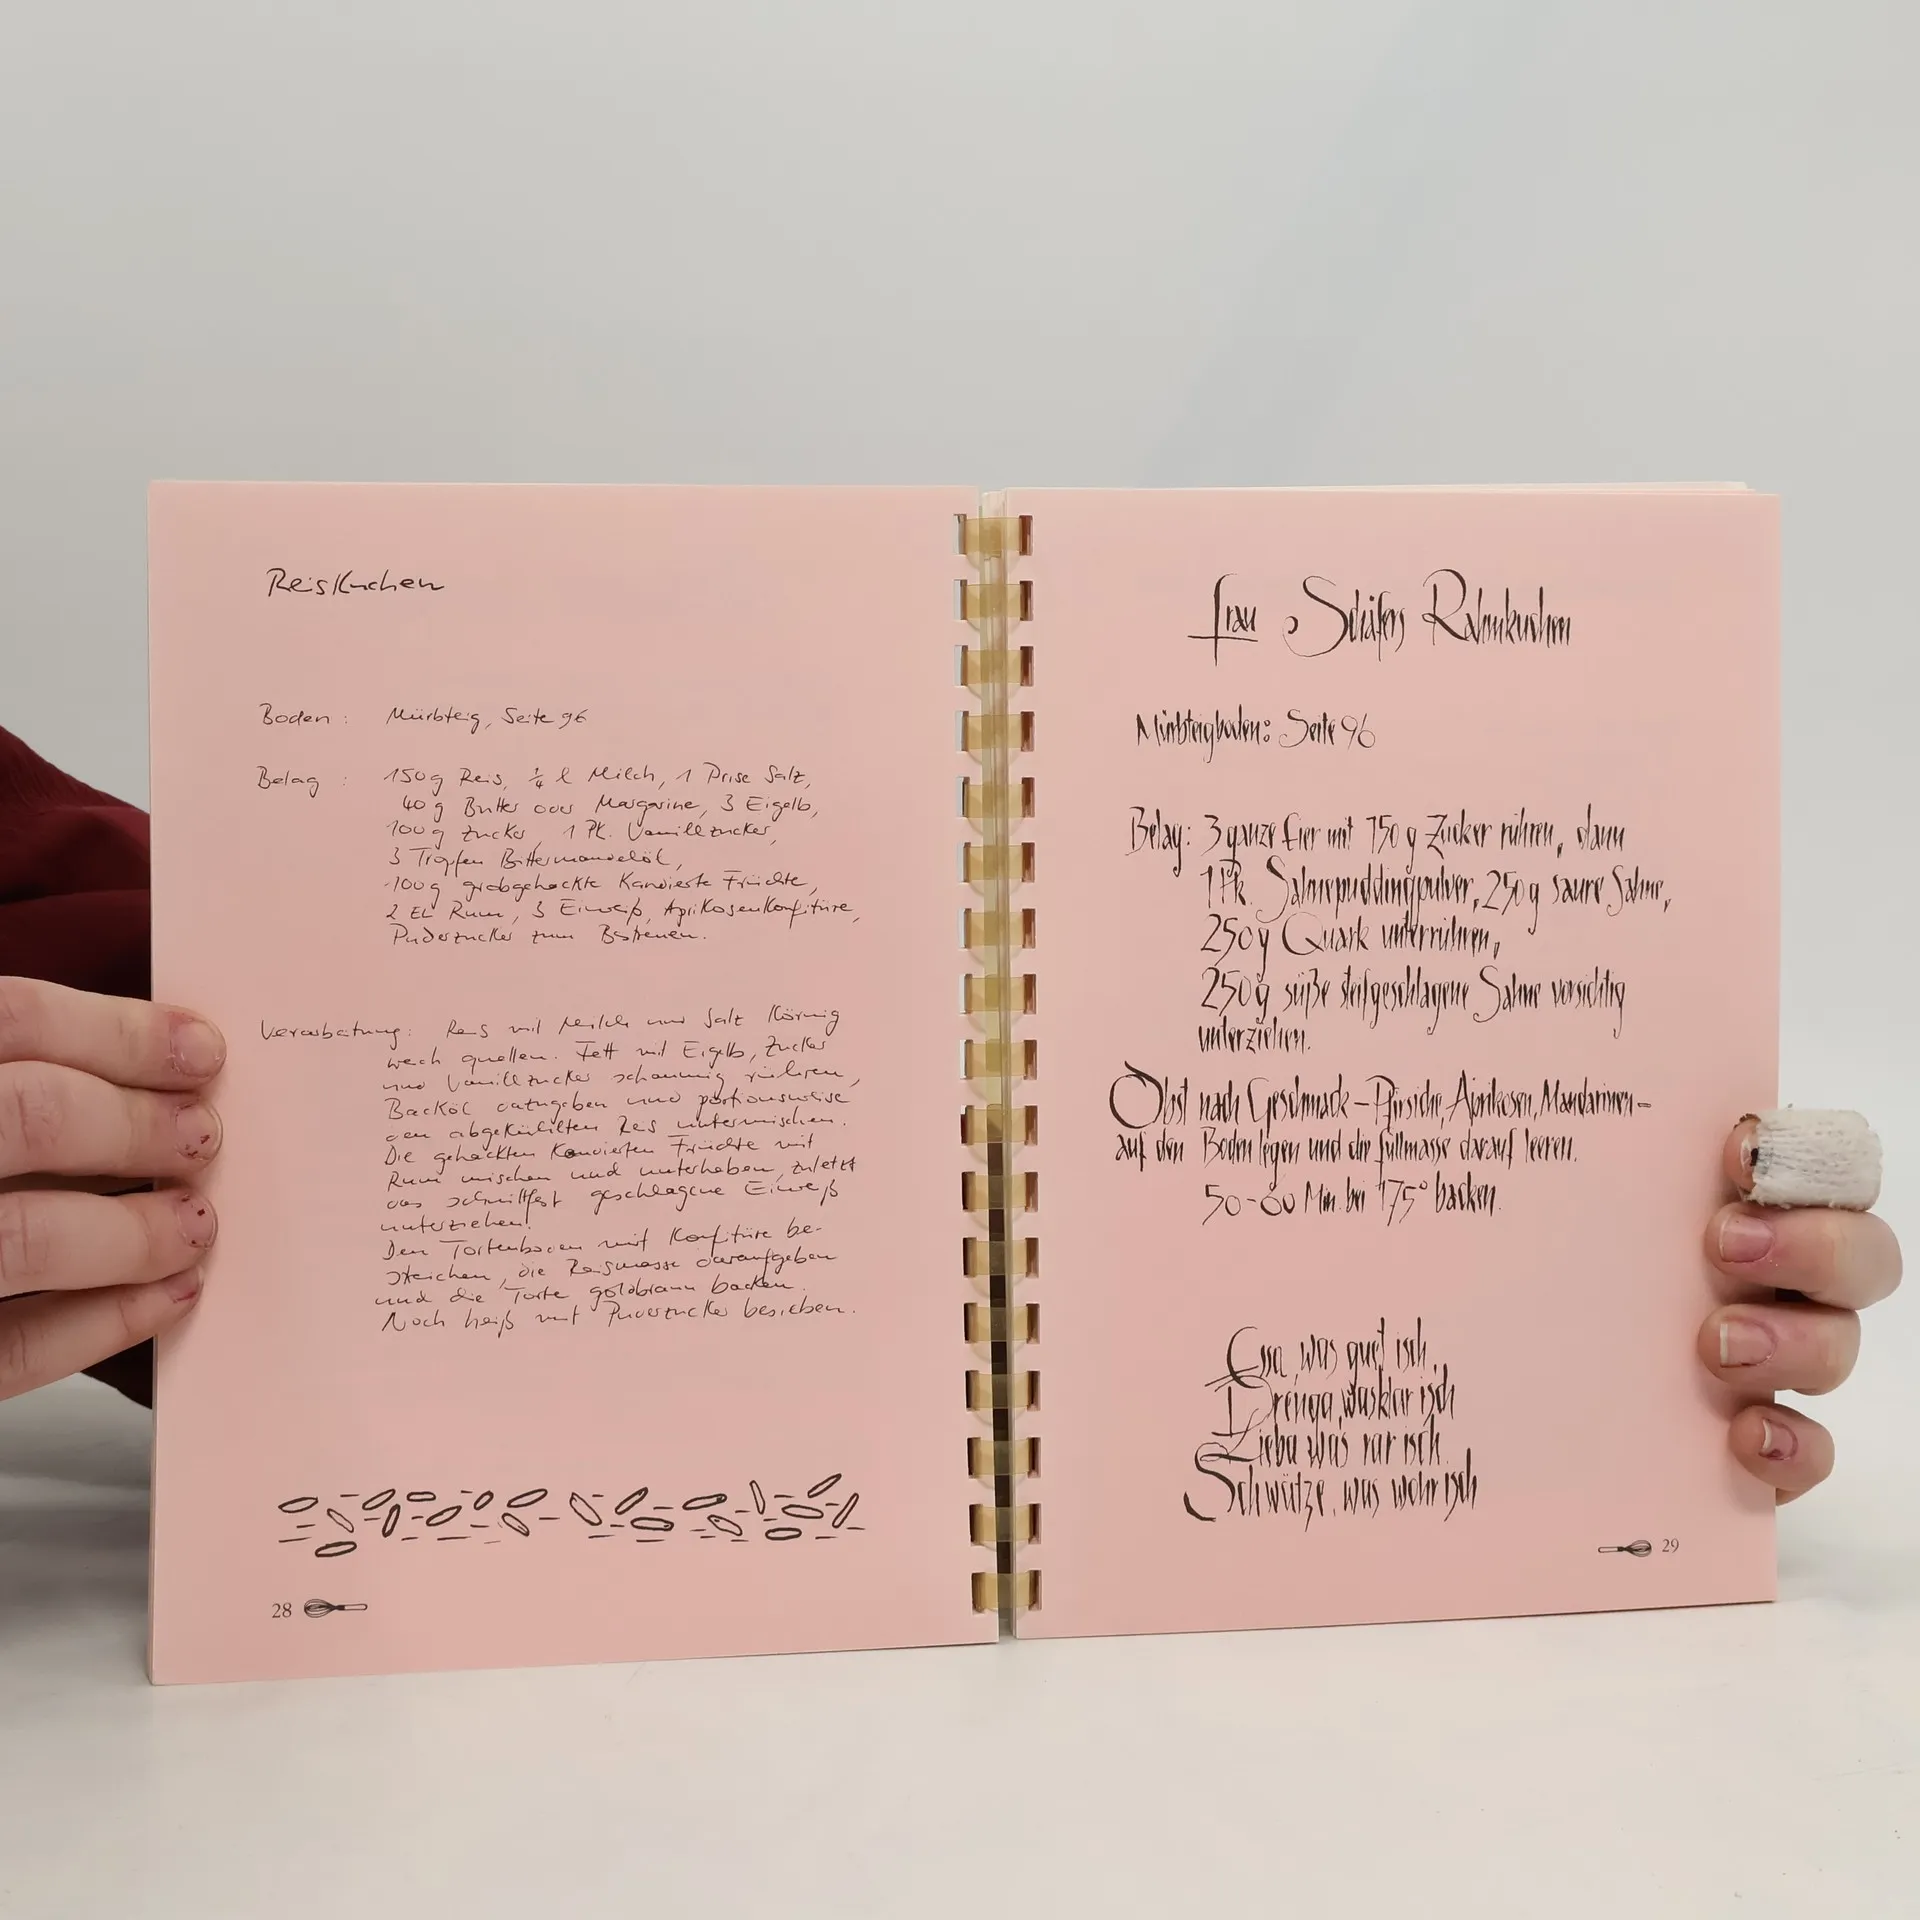 Reiskuchen
Boden : Mürbteig, Seite 96
Belag : 150g Reis, ¼ l Milch, 1 Prise Salz,
40 g Butter oder Margarine, 3 Eigelb,
100g Zucker, 1 Pk. Vanillzucker,
3 Tropfen Bittermandelöl,
100g grobgehackte Kandierte Früchte,
2 EL Rum, 3 Eiweiß, Aprikosenkonfitüre,
Puderzucker zum Bestreuen.
Verarbeitung: Reis mit Milch und Salz Körnig
weich quellen. Fett mit Eigelb, Zucker
und Vanillzucker schaumig rühren,
Backöl dazugeben und portionsweise
den abgekühlten Reis untermischen.
Die gehackten Kandierten Früchte mit
Rum mischen und unterheben, zuletzt
das schnittfest geschlagene Eiweiß
unterziehen!
Den Tortenboden mit Konfitüre be-
streichen, die Reismasse daraufgeben
und die Torte goldbraun backen.
Noch heiß mit Puderzucker besieben.
28
Frau Schäfers Rahmkuchen
Mürbteigboden: Seite 96
Belag: 3 ganze Eier mit 150 g Zucker rühren, dann
1 Pk. Sahnepuddingpulver, 250g saure Sahne,
250g Quark unterrühren,
250g süße steifgeschlagene Sahne vorsichtig
unterziehen.
Obst nach Geschmack – Pfirsiche, Aprikosen, Mandarinen –
auf den Boden legen und die Füllmasse darauf leeren.
50-60 Min. bei 175° backen.
Essa, was guet isch,
Drenga, was klar isch
Lieba was rar isch.
Schwätze, was wohr isch
29